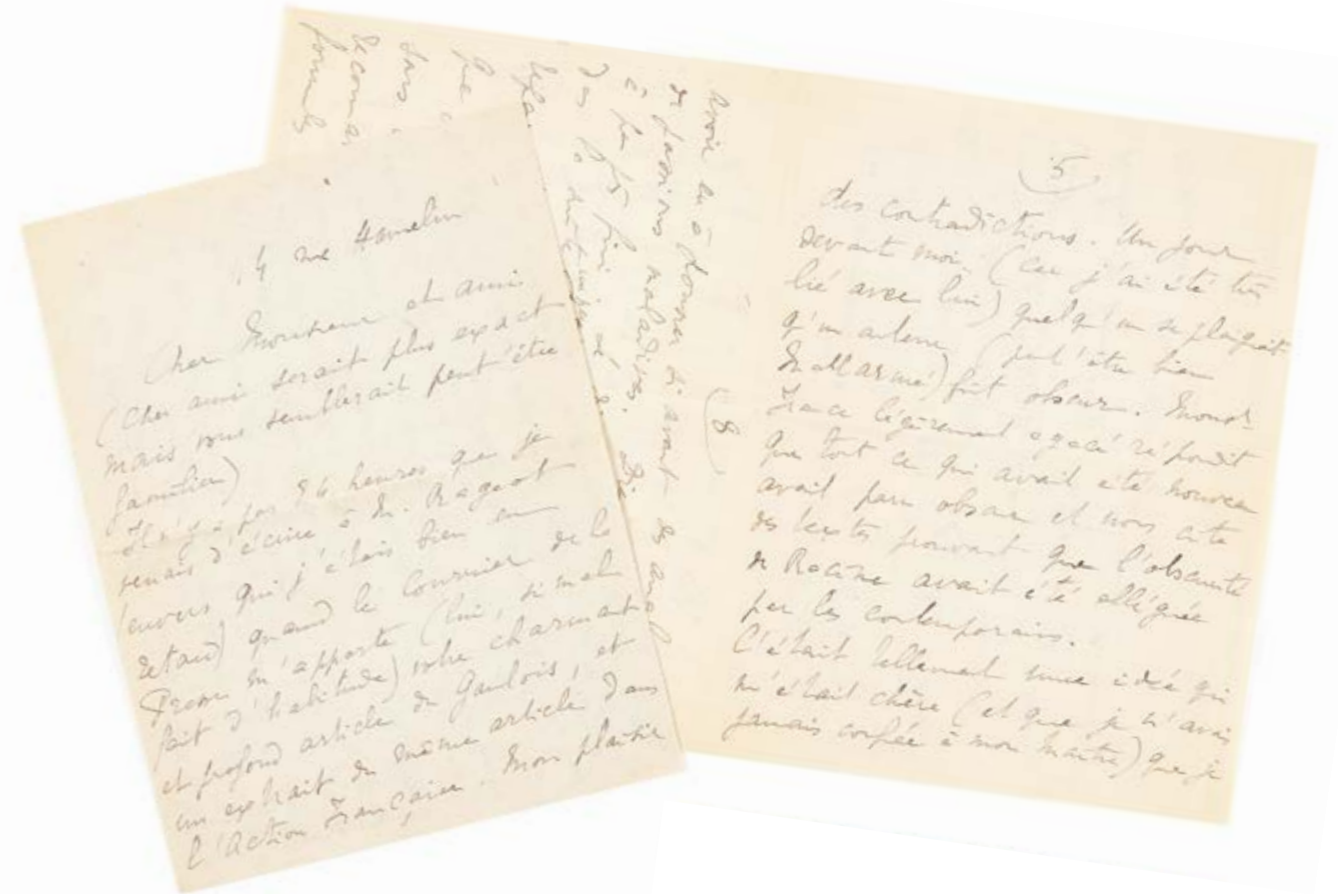 4 rue Hamelin
Cher Monsieur et ami
(Cher ami serait plus exact
mais vous semblerait peut'être
familier)
Il n'y a pas 24 heures que je
venais d'écrire à M. Rageot
(envers qui j'étais bien en
retard) quand le Courrier de la
Presse m'apporte (lui, si mal
fait d'habitude) votre charmant
et profond article du Gaulois, et
un extrait du même article dans
l'Action Française. Mon plaisir
(5)
des contradictions. Un jour
devant moi. (Car j'ai été très
lié avec lui) quelqu'un se plaignait
qu'un auteur (peut'être bien
Mallarmé) fût obscur. Monsr
France légèrement agacé répondit
que tout ce qui avait été nouveau
avait paru obscur et nous cita
des textes prouvant que l'obscurité
de Racine avait été alléguée
par les contemporains.
C'était tellement une idée qui
m'était chère (et que je n'avais
jamais confiée à mon maître) que je
(8)
de passions maladives.
à la fois
que
dans
formule